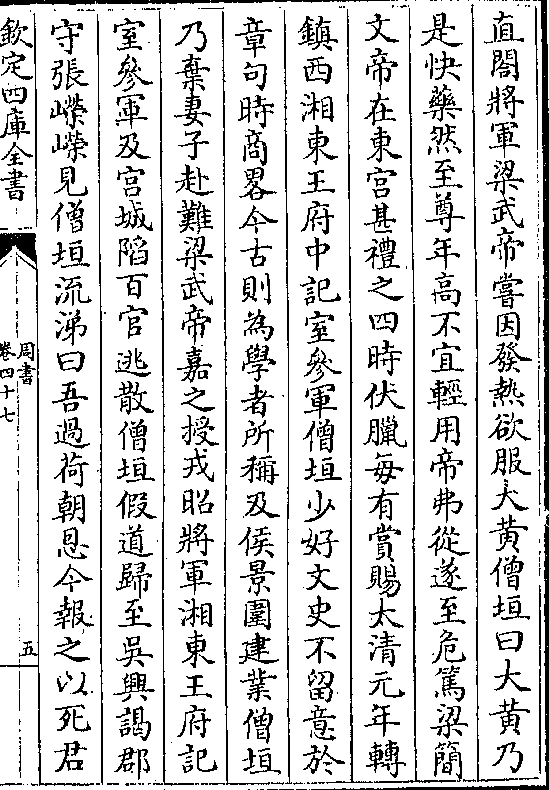 直閣將軍梁武帝嘗因發熱欲服大黄僧垣曰大黄乃
是快藥然至尊年高不宜輕用帝弗從遂至危篤梁簡
文帝在東宫甚禮之四時伏臘每有賞賜太清元年轉
鎮西湘東王府中記室參軍僧垣少好文史不留意於
章句時商畧今古則為學者所稱及侯景圍建業僧垣
乃棄妻子赴難梁武帝嘉之授戎昭將軍湘東王府記
室參軍及宫城䧟百官逃散僧垣假道歸至吳興謁郡
守張嶸嶸見僧垣流涕曰吾過荷朝恩今報之以死君
欽定四庫全書
周書
卷四十七
五